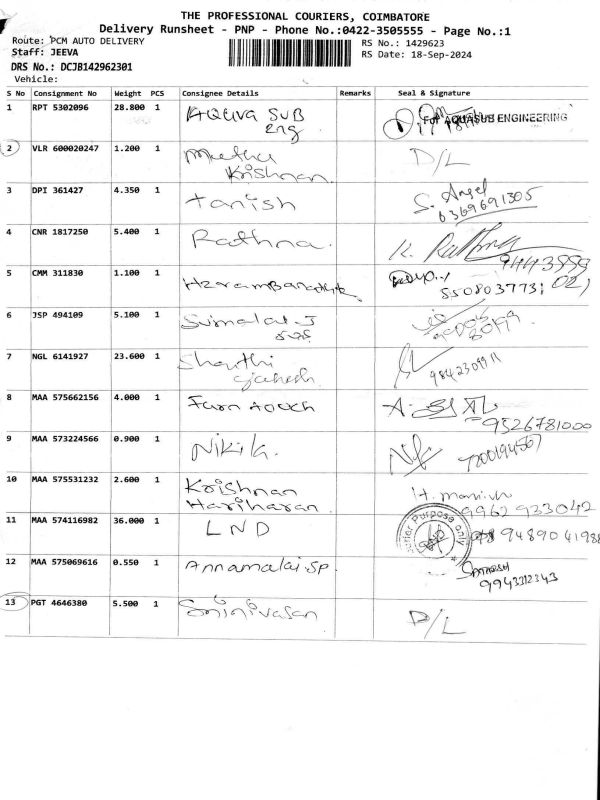 THE PROFESSIONAL COURIERS, COIMBATORE
Delivery Runsheet - PNP - Phone No.:0422-3505555 - Page No.:1
Route: PCM AUTO DELIVERY
Staff: JEEVA
DRS No.: DCJB142962301
Vehicle:
RS No.: 1429623
RS Date: 18-Sep-2024
S No Consignment No Weight PCS Consignee Details Remarks Seal & Signature
1 RPT 5302096 28.800 1 AQUVA SUB For AQUASUB ENGINEERING
Eng
2 VLR 600020247 1.200 1 D/L
Krishnan
3 DPI 361427 4.350 1 Tanish S. Angel
6369691305
4 CNR 1817250 5.400 1 Rathna. K. Rathna
5 CMM 311830 1.100 1
6 JSP 494109 5.100 1
7 NGL 6141927 23.600 1 Shanthi
8 MAA 575662156 4.000 1 Farn Aouch
9526781000
9 MAA 573224566 0.900 1 Nikila.
7200194567
10 MAA 575531232 2.600 1 Krishnan
Hariharan 9962933042
11 MAA 574116982 36.000 1 LND Purpose only 94890 41988
12 MAA 575069616 0.550 1 Annamalai.SP.
9943312343
13 PGT 4646380 5.500 1 Srinivasan D/L